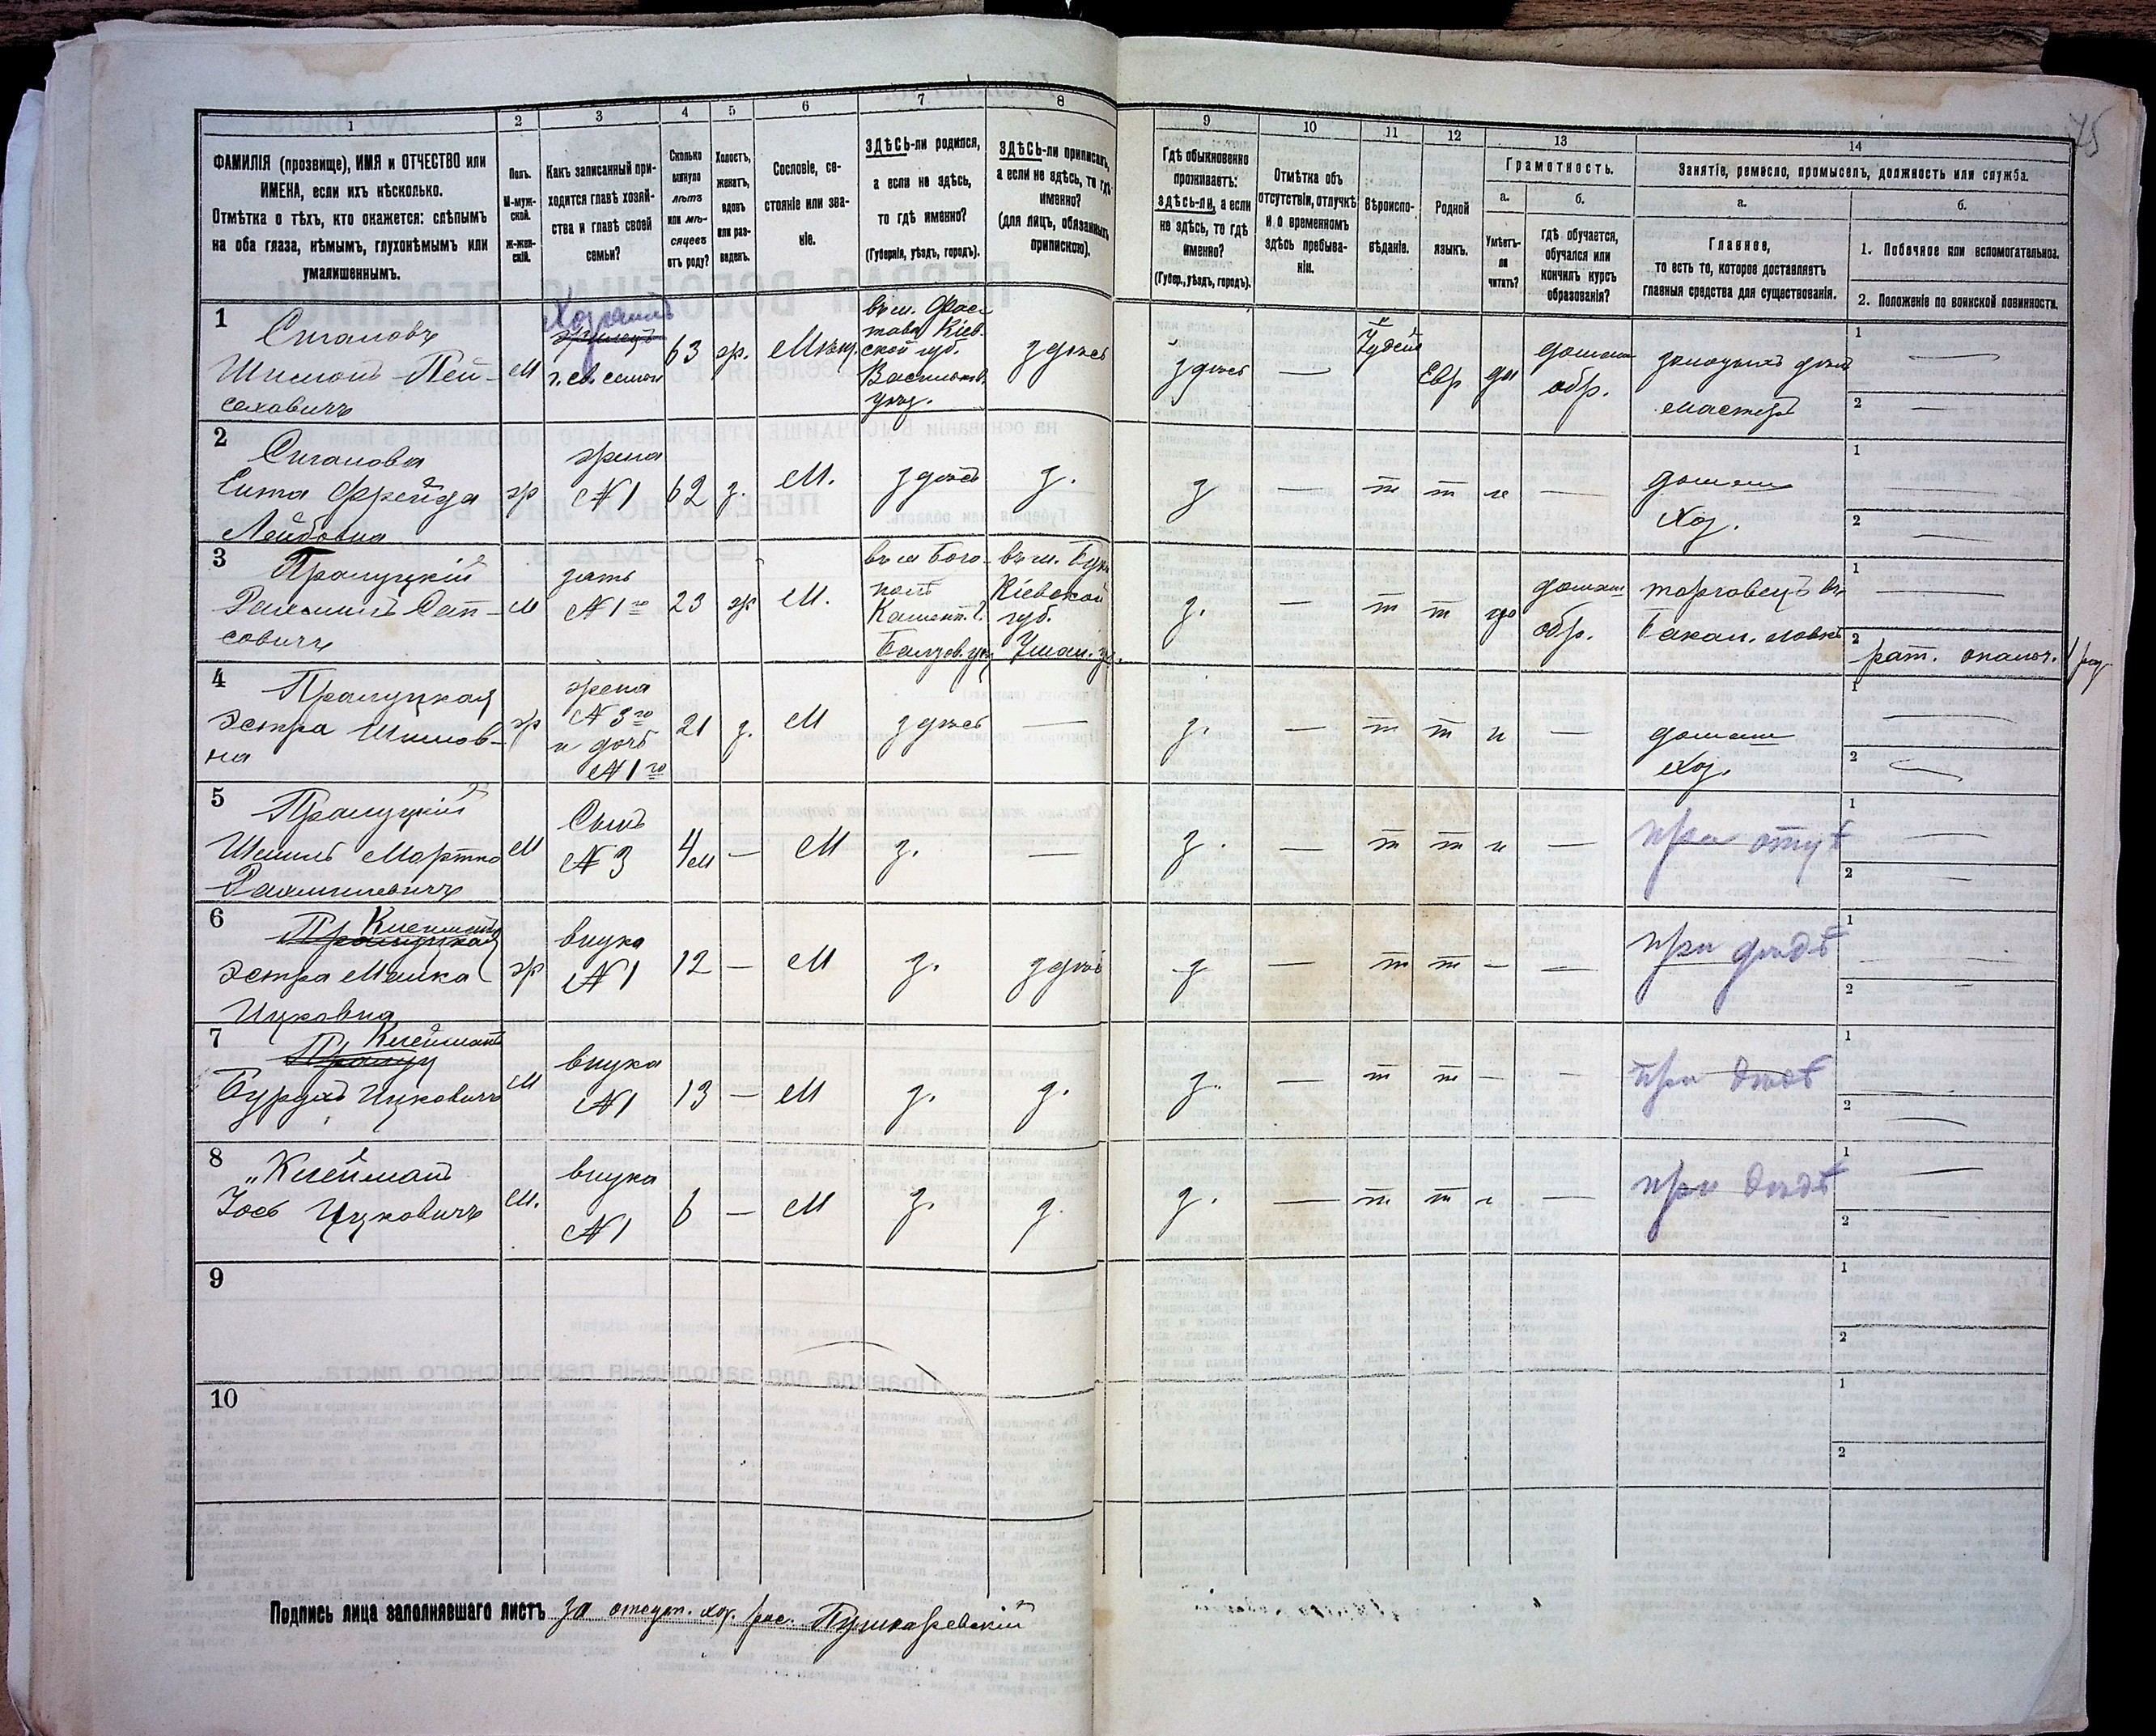 75
1 2 3 4 5 6 7 8 9 10 11 12 13 14
ФАМИЛІЯ (прозвище), ИМЯ и ОТЧЕСТВО или
ИМЕНА, если ихъ нѣсколько.
Отмѣтка о тѣхъ, кто окажется: слѣпымъ
на оба глаза, нѣмымъ, глухонѣмымъ или
умалишеннымъ.
Полъ.
М-муж-
ской.
Ж-жен-
скій.
Какъ записанный при-
ходится главѣ хозяй-
ства и главѣ своей
семьи?
Сколько
минуло
лѣтъ
или мѣ-
сяцевъ
отъ роду?
Холостъ,
женатъ,
вдовъ
или раз-
веденъ.
Сословіе, со-
стояніе или зва-
ніе.
ЗДѢСЬ-ли родился,
а если не здѣсь,
то гдѣ именно?
(Губернія, уѣздъ, городъ).
ЗДѢСЬ-ли приписанъ,
а если не здѣсь, то гдѣ
именно?
(для лицъ, обязанныхъ
припискою).
Гдѣ обыкновенно
проживаетъ:
ЗДѢСЬ-ли, а если
не здѣсь, то гдѣ
именно?
(Губер., уѣздъ, городъ).
Отмѣтка объ
отсутствіи, отлучкѣ
и о временномъ
здѣсь пребыва-
ніи.
Вѣроиспо-
вѣданіе.
Родной
языкъ.
Грамотность.
а.
Умѣетъ-
ли
читать?
б.
гдѣ обучается,
обучался или
кончилъ курсъ
образованія?
Занятіе, ремесло, промыселъ, должность или служба.
а.
Главное,
то есть то, которое доставляетъ
главныя средства для существованія.
б.
1. Побочное или вспомогательное.
2. Положеніе по воинской повинности.
1
Шимонъ Пей-
саховичъ
М
Хозяинъ
г. св. семьи
63
ж.
Мѣщ.
въ м. Фас-
това Кіев-
ской губ.
Васильк.
уѣз.
здѣсь
здѣсь
—
Іудей
Евр
да
домаш
обр.
мастеръ
1 —
2 —
2
Фрейда
Лейбовна
ж
жена
№ 1
62
з.
М.
здѣсь
з.
з
—
т
т
н
—
домаш
хоз.
1
2 —
3
Рахмиль
совичъ
М
зять
№ 1го
23
ж
М.
въ м Бого-
полѣ
Балтов. уѣз
въ м.
Кіевской
губ.
Уман. у.
з.
—
т
т
да
домаш
обр.
торговецъ въ
бакал. лавкѣ
1 —
2 рат. ополч. 1 раз
4
Эстра Шимов-
на
ж
жена
№ 3го
и дочь
№ 1го
21
з.
М
здѣсь
—
з.
—
т
т
н
—
домаш
хоз.
1 —
2 —
5
Шмиль Мортко
Рахмилевичъ
М
Сынъ
№ 3
4 м
—
М
з.
—
з.
—
т
т
н
—
при отцѣ
1 —
2 —
6
Клейманъ
Эстра Малка
Ицковна
ж
внука
№ 1
12
—
М
з.
здѣсь
з
—
т
т
—
—
при дѣдѣ
1 —
2 —
7
Клейманъ
Ицковичъ
М
внука
№ 1
13
—
М
з.
з.
з.
—
т
т
—
—
при дѣдѣ
1 —
2 —
8
Клейманъ
Іось Ицковичъ
М.
внука
№ 1
6
—
М
з.
з.
з.
—
т
т
н
—
при дѣдѣ
1 —
2 —
9
1
2
10
1
2
Подпись лица заполнявшаго листъ за отсут. хоз. рас. Пушкаревскій